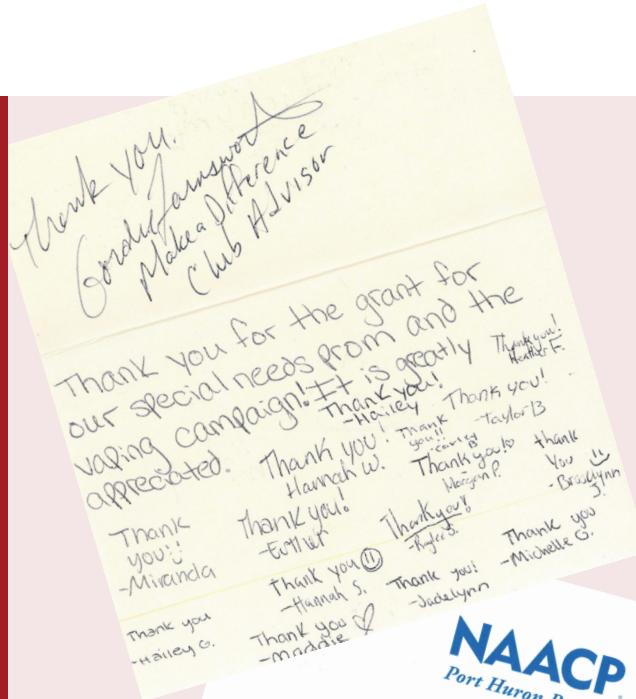 Thank you.
Gordie Farnsworth
Make a Difference
Club Advisor
Thank you for the grant for
our special needs prom and the
vaping campaign! It is greatly
appreciated.
Thank you!
Heather F.
Thank you!
-Hailey
Thank you!
-Taylor B
Thank you!
Hannah W.
Thank
you!!
Thank you!
Morgan P.
Thank
you
-Brooklynn
J.
Thank
you!!
-Miranda
Thank you!
-Esther
Thank you!
Thank you
-Michelle G.
Thank you
-Hannah S.
Thank you!
-Jadelynn
Thank you
-Hailey G.
Thank you
-Maddie
NAACP
Port Huron